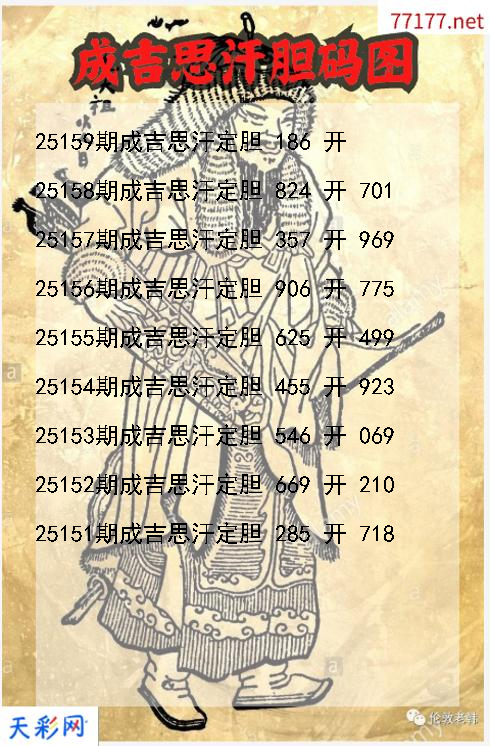 77177.net
成吉思汗胆码图
太祖
25159期成吉思汗定胆 186 开
25158期成吉思汗定胆 824 开 701
25157期成吉思汗定胆 357 开 969
25156期成吉思汗定胆 906 开 775
25155期成吉思汗定胆 625 开 499
25154期成吉思汗定胆 455 开 923
25153期成吉思汗定胆 546 开 069
25152期成吉思汗定胆 669 开 210
25151期成吉思汗定胆 285 开 718
天彩网
伦敦老韩